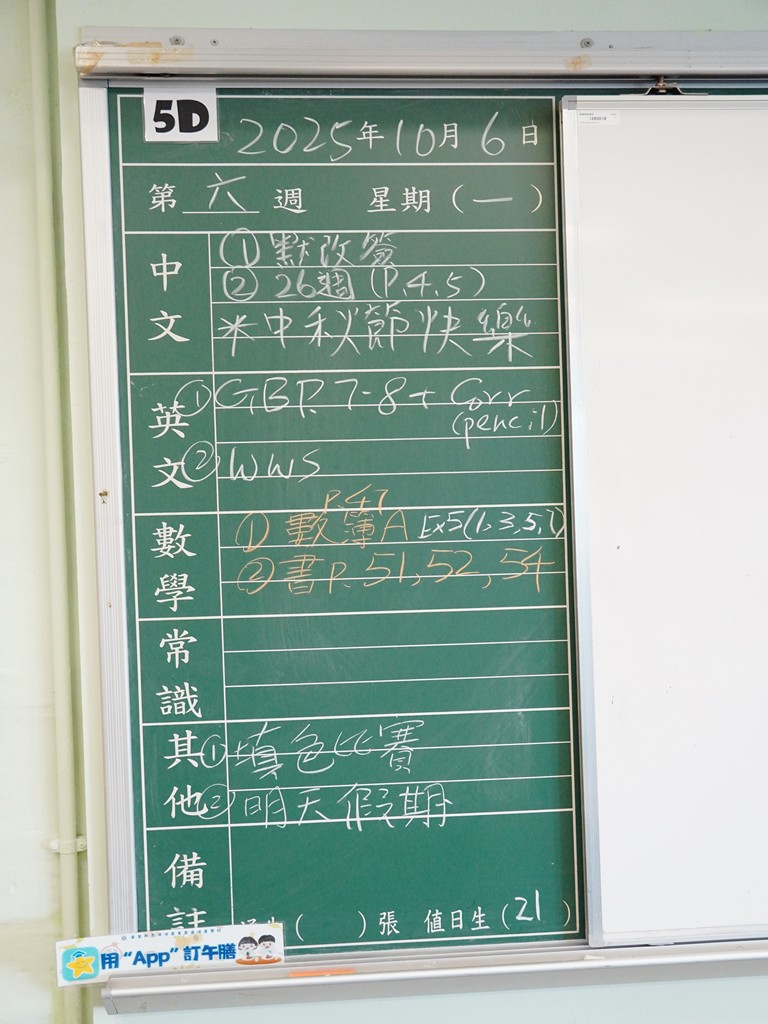 5D
2025年10月6日
第六週 星期(一)
中文
① 默改簽
② 26週 (P.4、5)
*中秋節快樂
英文
① GBP. 7-8 + Corr
(pencil)
② WWS
數學
P.47
① 數簿A Ex5(1,3,5,7)
② 書P.51,52,54
常識
其他
① 填色比賽
② 明天假期
備註
( )張 值日生(21)
用"App"訂午膳